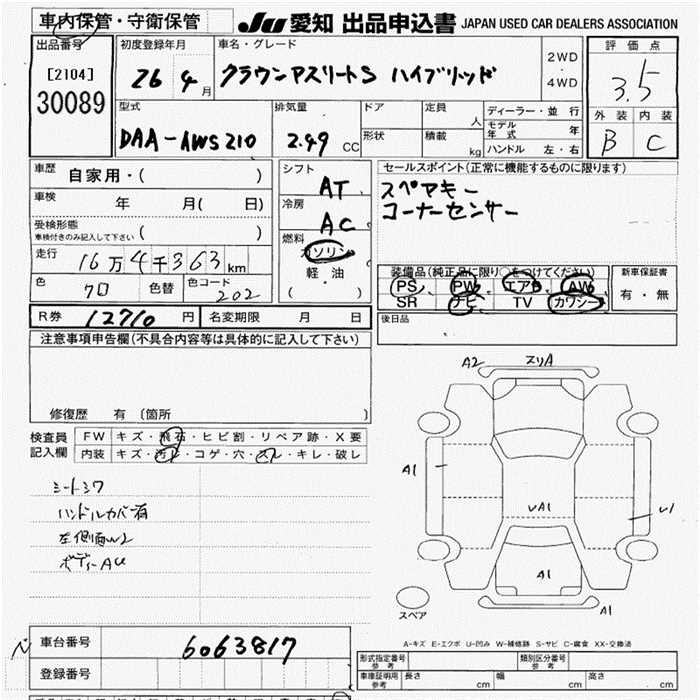 車内保管・守衛保管
JU 愛知 出品申込書 JAPAN USED CAR DEALERS ASSOCIATION
出品番号
[2104]
30089
初度登録年月
26 4月
車名・グレード
クラウンアスリートS ハイブリッド
2WD
4WD
評価点
3.5
外装 内装
B C
型式
DAA-AWS210
排気量
2.49 CC
ドア
形状
定員 人
積載 kg
ディーラー・並行
モデル年式 年
ハンドル 左・右
車歴 自家用・( )
車検 年 月( 日)
受検形態
車検付きのみ記入して下さい ( )
走行 16万4千363km
色 クロ 色替 色コード 202
シフト AT
冷房 AC
燃料 ガソリン
軽・油
( )
セールスポイント(正常に機能するものに限ります)
スペアキー
コーナーセンサー
装備品(純正品に限り○をつけてください)
PS PW エアB AW
SR ナビ TV カワシート
新車保証書
有・無
R券 12710円 名変期限 月 日
後日品
注意事項申告欄(不具合内容等は具体的に記入して下さい)
修復歴 有 〔箇所 〕
検査員記入欄
FW キズ・飛石・ヒビ割・リペア跡・X要
内装 キズ・汚レ・コゲ・穴・スレ・キレ・破レ
シートシワ
ハンドルカバー有
左側面W2
A2
スリA
A1
UA1
U1
A1
A1
スペア
A-キズ E-エクボ U-凹み W-補修跡 S-サビ C-腐食 XX-交換済
車台番号 6063817
登録番号
形式指定番号 参考
類別区分番号 参考
車庫証明用 参考 長さ cm 幅 cm 高さ cm